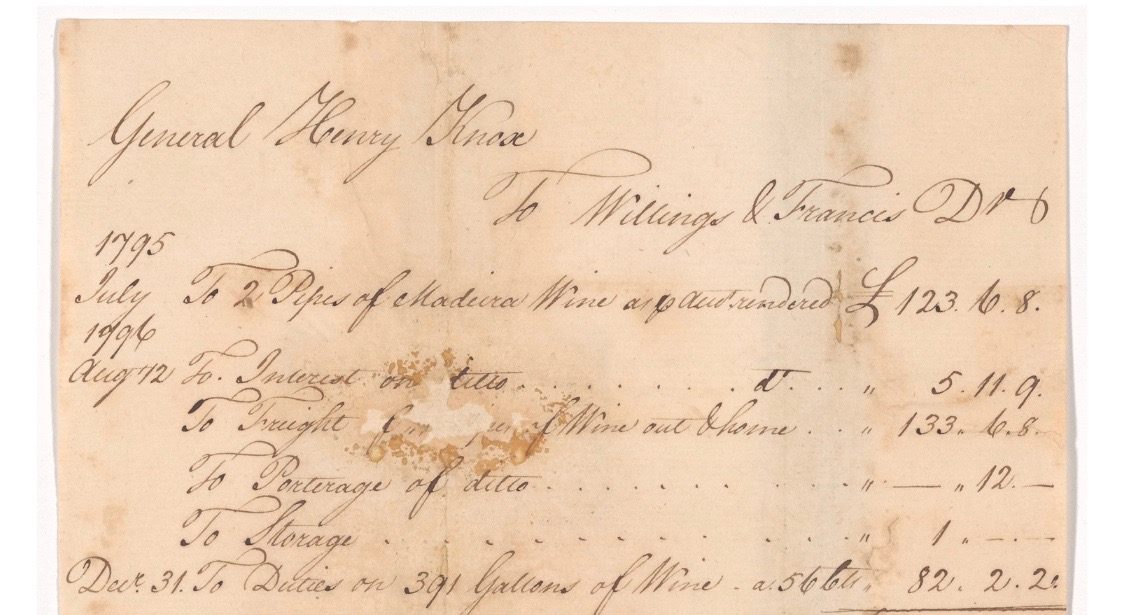 General Henry Knox
To Willings & Francis Dr
1795
July To 2 Pipes of Madeira Wine as p Acct. rendered £ 123. 6. 8.
1796
Augt 12 To Interest on ditto . . . . . . . . do. . . . " 5. 11. 9.
To Freight of Wine out & home . . . " 133 " 6. 8.
To Porterage of ditto . . . . . . . . . . " — " 12. —
To Storage . . . . . . . . . . . . . . " 1 " — . —
Decr. 31. To Duties on 391 Gallons of Wine - a 56 Cts " 82. 2. 2.